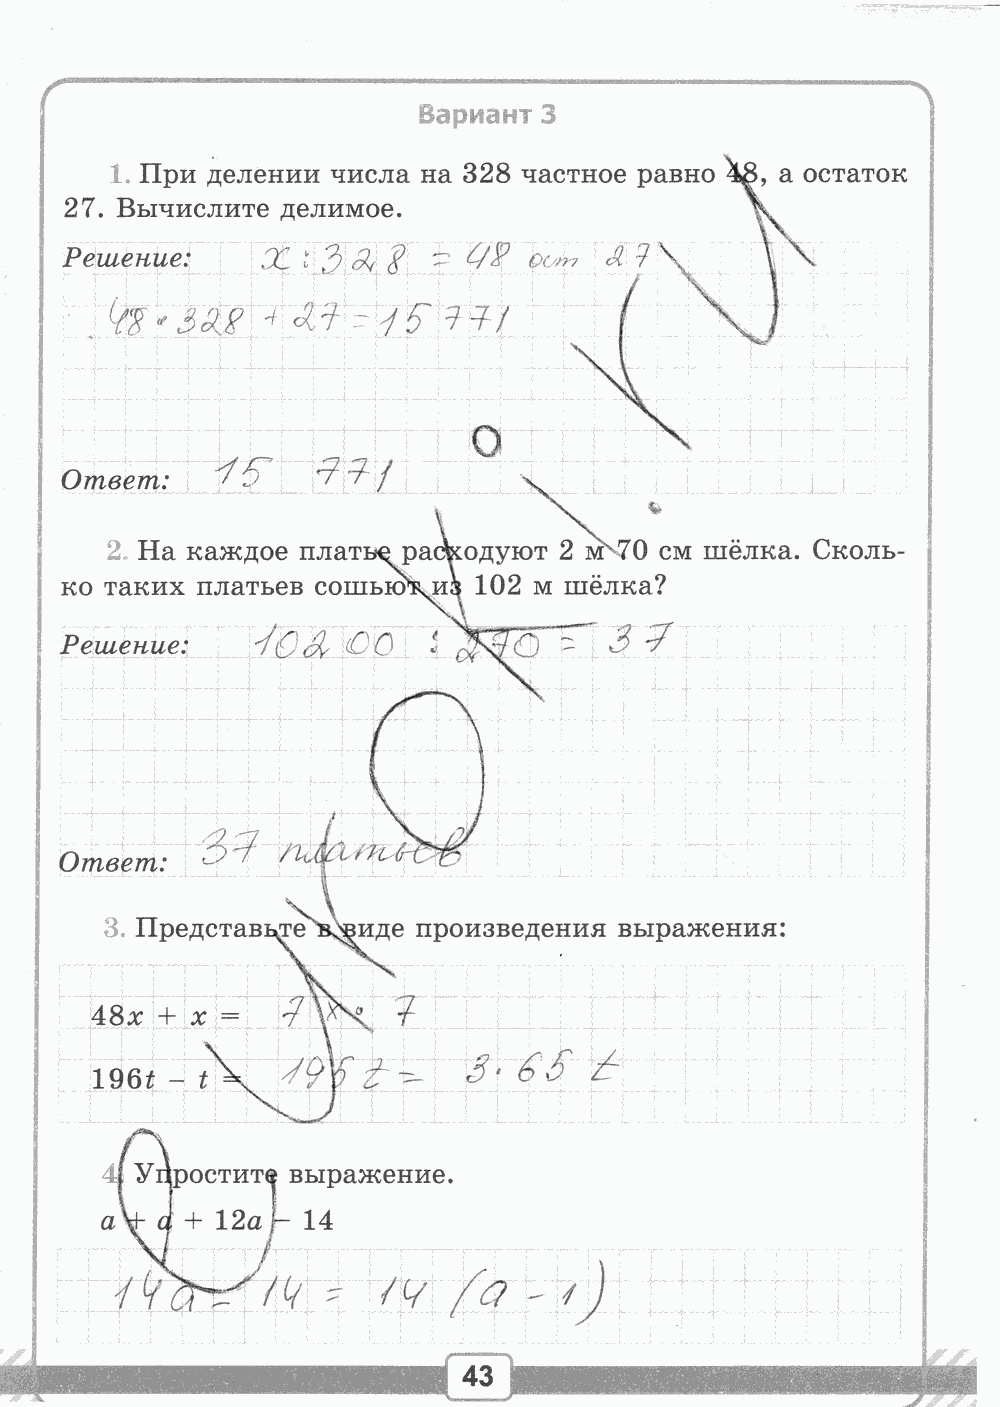 Вариант 3
1. При делении числа на 328 частное равно 48, а остаток
27. Вычислите делимое.
Решение: x : 328 = 48 ост 27
48 · 328 + 27 = 15 771
Ответ: 15 771
2. На каждое платье расходуют 2 м 70 см шёлка. Сколь-
ко таких платьев сошьют из 102 м шёлка?
Решение: 102 00 : 270 = 37
Ответ: 37 платьев
3. Представьте в виде произведения выражения:
48x + x = 7 x · 7
196t – t = 195 t = 3 · 65 t
4. Упростите выражение.
a + a + 12a – 14
14a – 14 = 14 (a – 1)
43